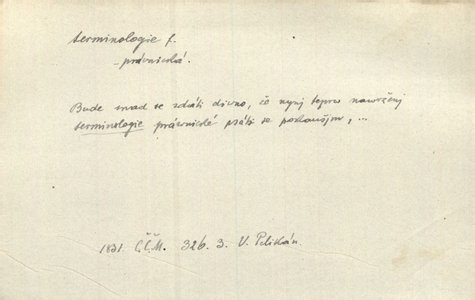 terminologie f.
- právnická.
Bude snad se zdáti divno, že nyní teprv navržený
terminologie právnické psáti se pokouším, ...
1831. Č.Č.M. 326. 3. V. Pelikán.